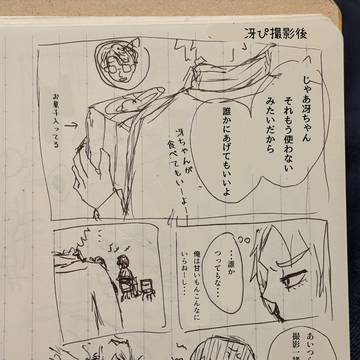 冴ぴ撮影後
じゃあ冴ちゃん
それもう使わない
みたいだから
誰かにあげてもいいよ
冴ちゃんが
食べてもいーよー
お菓子入ってる
・・・誰か
つってもな・・・
俺は甘いもんこんなに
いらねーし・・・
あいつら
撮影一緒